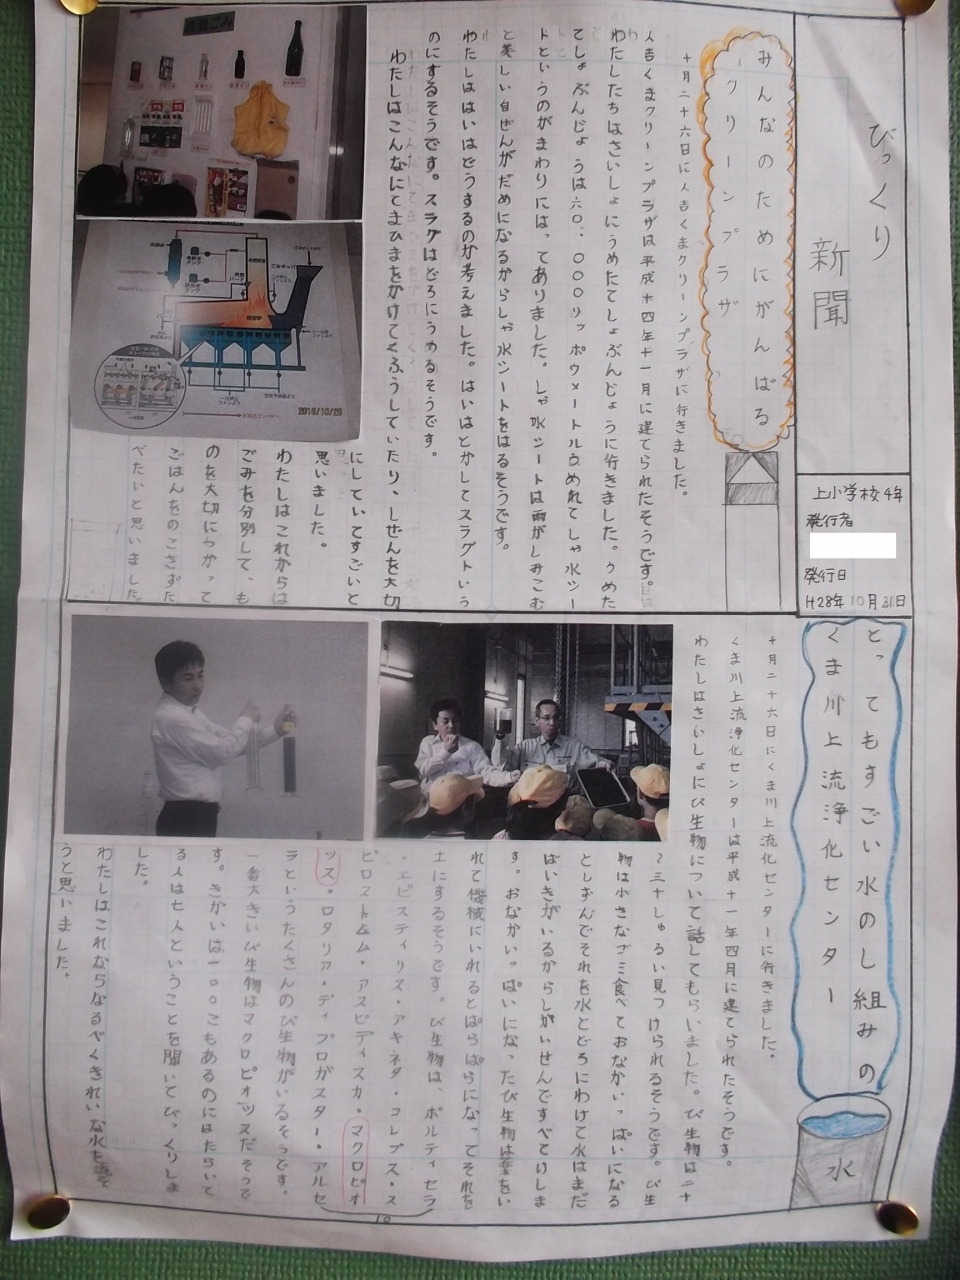 びっくり
新聞
上小学校4年
発行者
発行日
H28年10月31日
みんなのためにがんばる
クリーンプラザ
十月二十六日に人吉くまクリーンプラザに行きました。
人吉くまクリーンプラザは平成十四年十一月に建てられたそうです。
わたしたちはさいしょにうめたてしょぶんじょうに行きました。うめた
てしょぶんじょうは六〇、〇〇〇リッポウメートルうめれてしゃ水シー
トというのがまわりにはってありました。しゃ水シートは雨がしみこむ
と美しい自ぜんがだめになるからしゃ水シートをはるそうです。
わたしははいはどうするのか考えました。はいはとかしてスラグトいう
のにするそうです。スラグはどろにうめるそうです。
わたしはこんなにてまひまをかけてくふうしていたり、しぜんを大切
にしていてすごいと
思いました。
わたしはこれからは
ごみを分別して、も
のを大切につかって
ごはんをのこさずた
べたいと思いました。
2016/10/26
とってもすごい水のし組みの
くま川上流浄化センター
水
十月二十六日にくま川上流化センターに行きました。
くま川上流浄化センターは平成十一年四月に建てられたそうです。
わたしはさいしょにび生物について話してもらいました。び生物は二十
〜三十しゅるい見つけられるそうです。び生
物は小さなゴミ食べておなかいっぱいになる
としずんでそれを水とどろにわけて水はまだ
ばいきがいるからしがいせんですべていしま
す。おなかいっぱいになったび生物は薬をい
れて機械にいれるとぱらぱらになってそれを
土にするそうです。び生物は、ボルティセラ
・エピスティリス・アキネタ・コレプス・ス
ピロストムム・アスピディスカ・マクロビオ
ッス・ロタリア・ディプロガスター・アルセ
ラというたくさんのび生物がいるそうです。
一番大きいび生物はマクロビオッスだそうで
す。きかいは一〇〇こもあるのにはたらいて
る人は七人ということを聞いてびっくりしま
した。
わたしはこれならなるべくきれいな水を流そ
うと思いました。
10